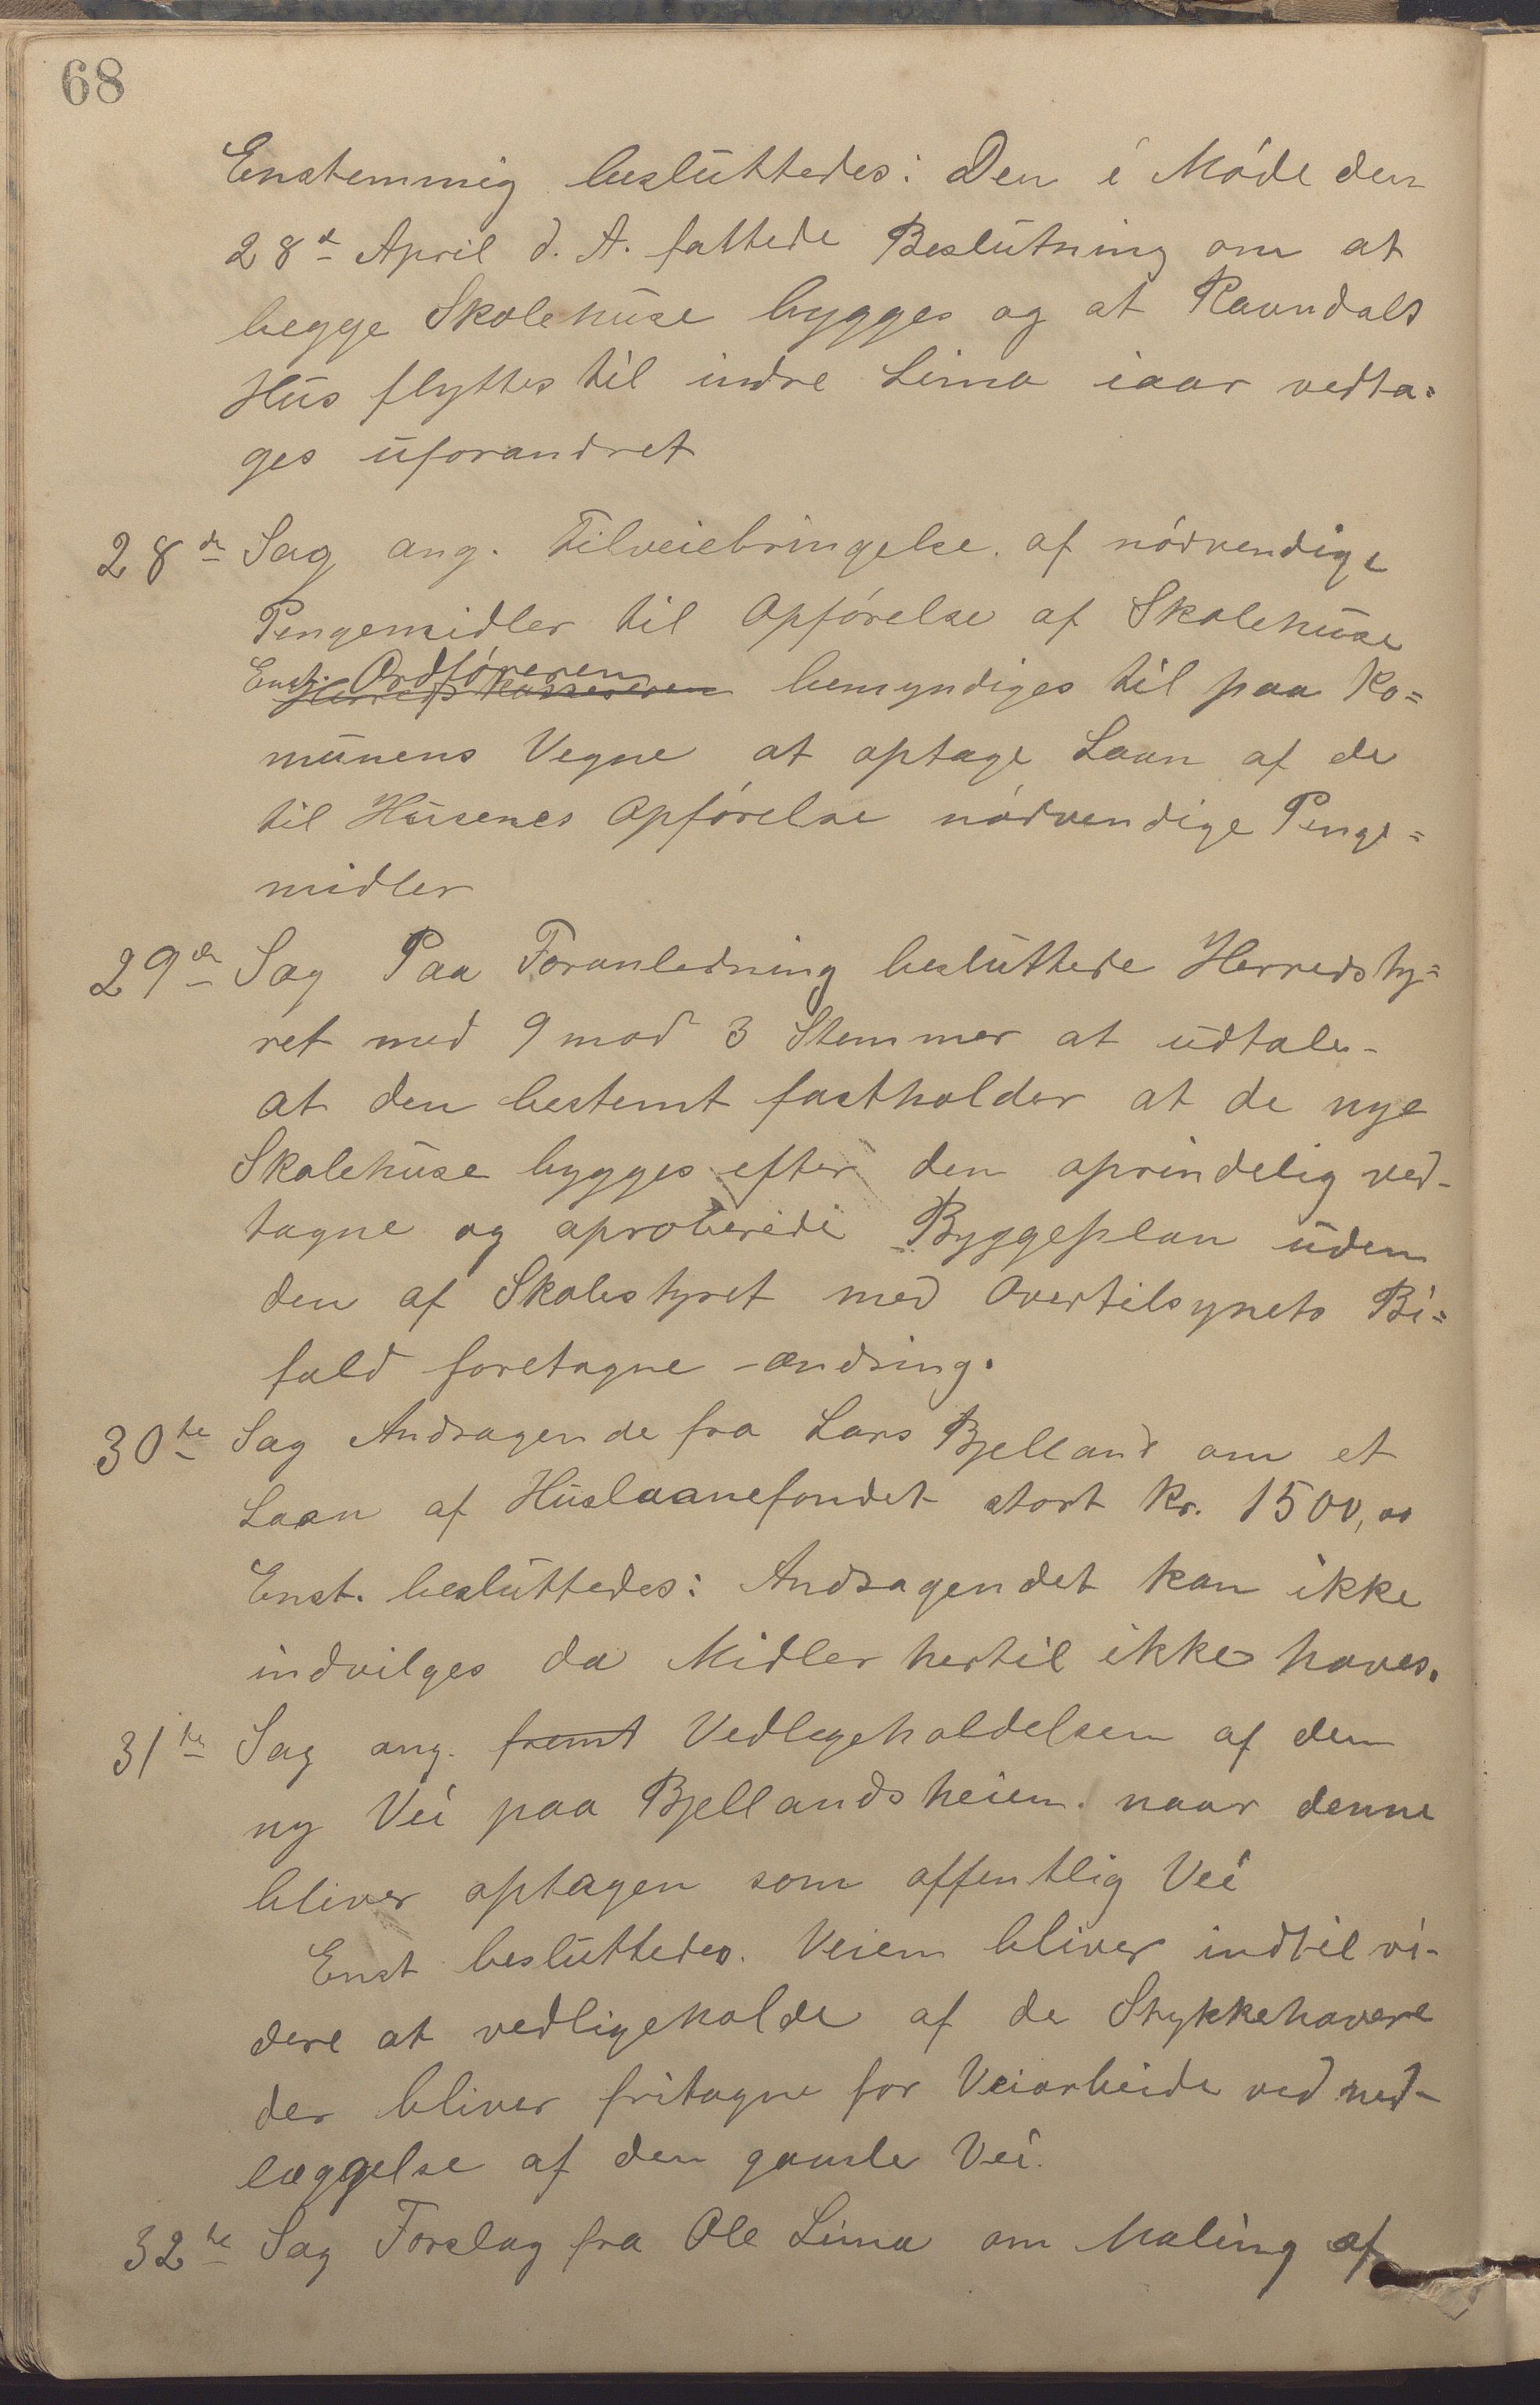 68
Enstemmig besluttedes: Den i Møde den
28d April d. A. fattede Beslutning om at
begge Skolehuse bygges og at Ravndals
Hus flyttes til indre Lima iaar vedta=
ges uforandret
28de Sag ang. Tilveiebringelse af nødvendige
Pengemidler til Opførelse af Skolehuse
Enst. Ordføreren
Herredskassereren bemyndiges til paa Ko=
munens Vegne at optage Laan af de
til Husenes Opførelse nødvendige Penge=
midler
29de Sag Paa Foranledning besluttede Herredsty=
ret med 9 mod 3 Stemmer at udtale-
at den bestemt fastholder at de nye
Skolehuse bygges efter den oprindelig ved-
tagne og aproberede Byggeplan uden
den af Skolestyret med Overtilsynets Bi=
fald foretagne ændring.
30te Sag Andragende fra Lars Bjelland om et
Laan af Huslaanefondet stort Kr. 1500,00
Enst. besluttedes: Andragendet kan ikke
indvilges da Midler hertil ikke haves.
31te Sag ang. fremt Vedligeholdelsen af den
ny Vei paa Bjellandsheien. naar denne
bliver optagen som offentlig Vei
Enst besluttedes. Veien bliver indtil vi-
dere at vedligeholde af de Stykkehavere
der bliver fritagne for Veiarbeide ved ned-
læggelse af den gamle Vei.
32te Sag Forslag fra Ole Lima om Maling af